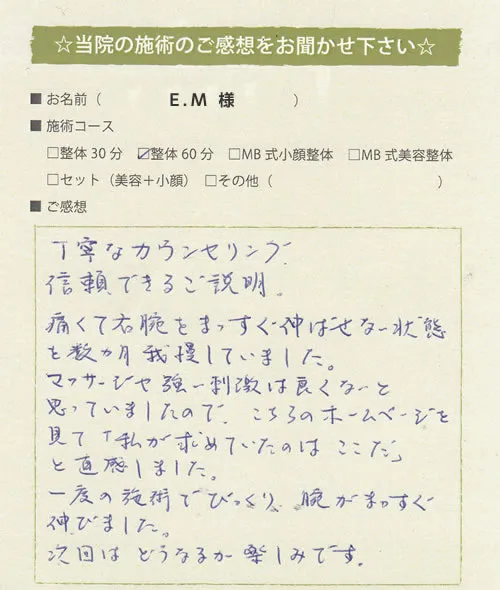 ☆当院の施術のご感想をお聞かせ下さい☆
■お名前（ E.M 様 ）
■施術コース
□整体30分 ☑整体60分 □MB式小顔整体 □MB式美容整体
□セット（美容＋小顔） □その他（ ）
■ご感想
丁寧なカウンセリング、
信頼できるご説明。
痛くて右腕をまっすぐ伸ばせない状態
を数カ月我慢していました。
マッサージや強い刺激は良くないと
思っていましたので、こちらのホームページを
見て「私が求めていたのは ここだ」
と直感しました。
一度の施術でびっくり、腕がまっすぐ
伸びました。
次回は どうなるか楽しみです。